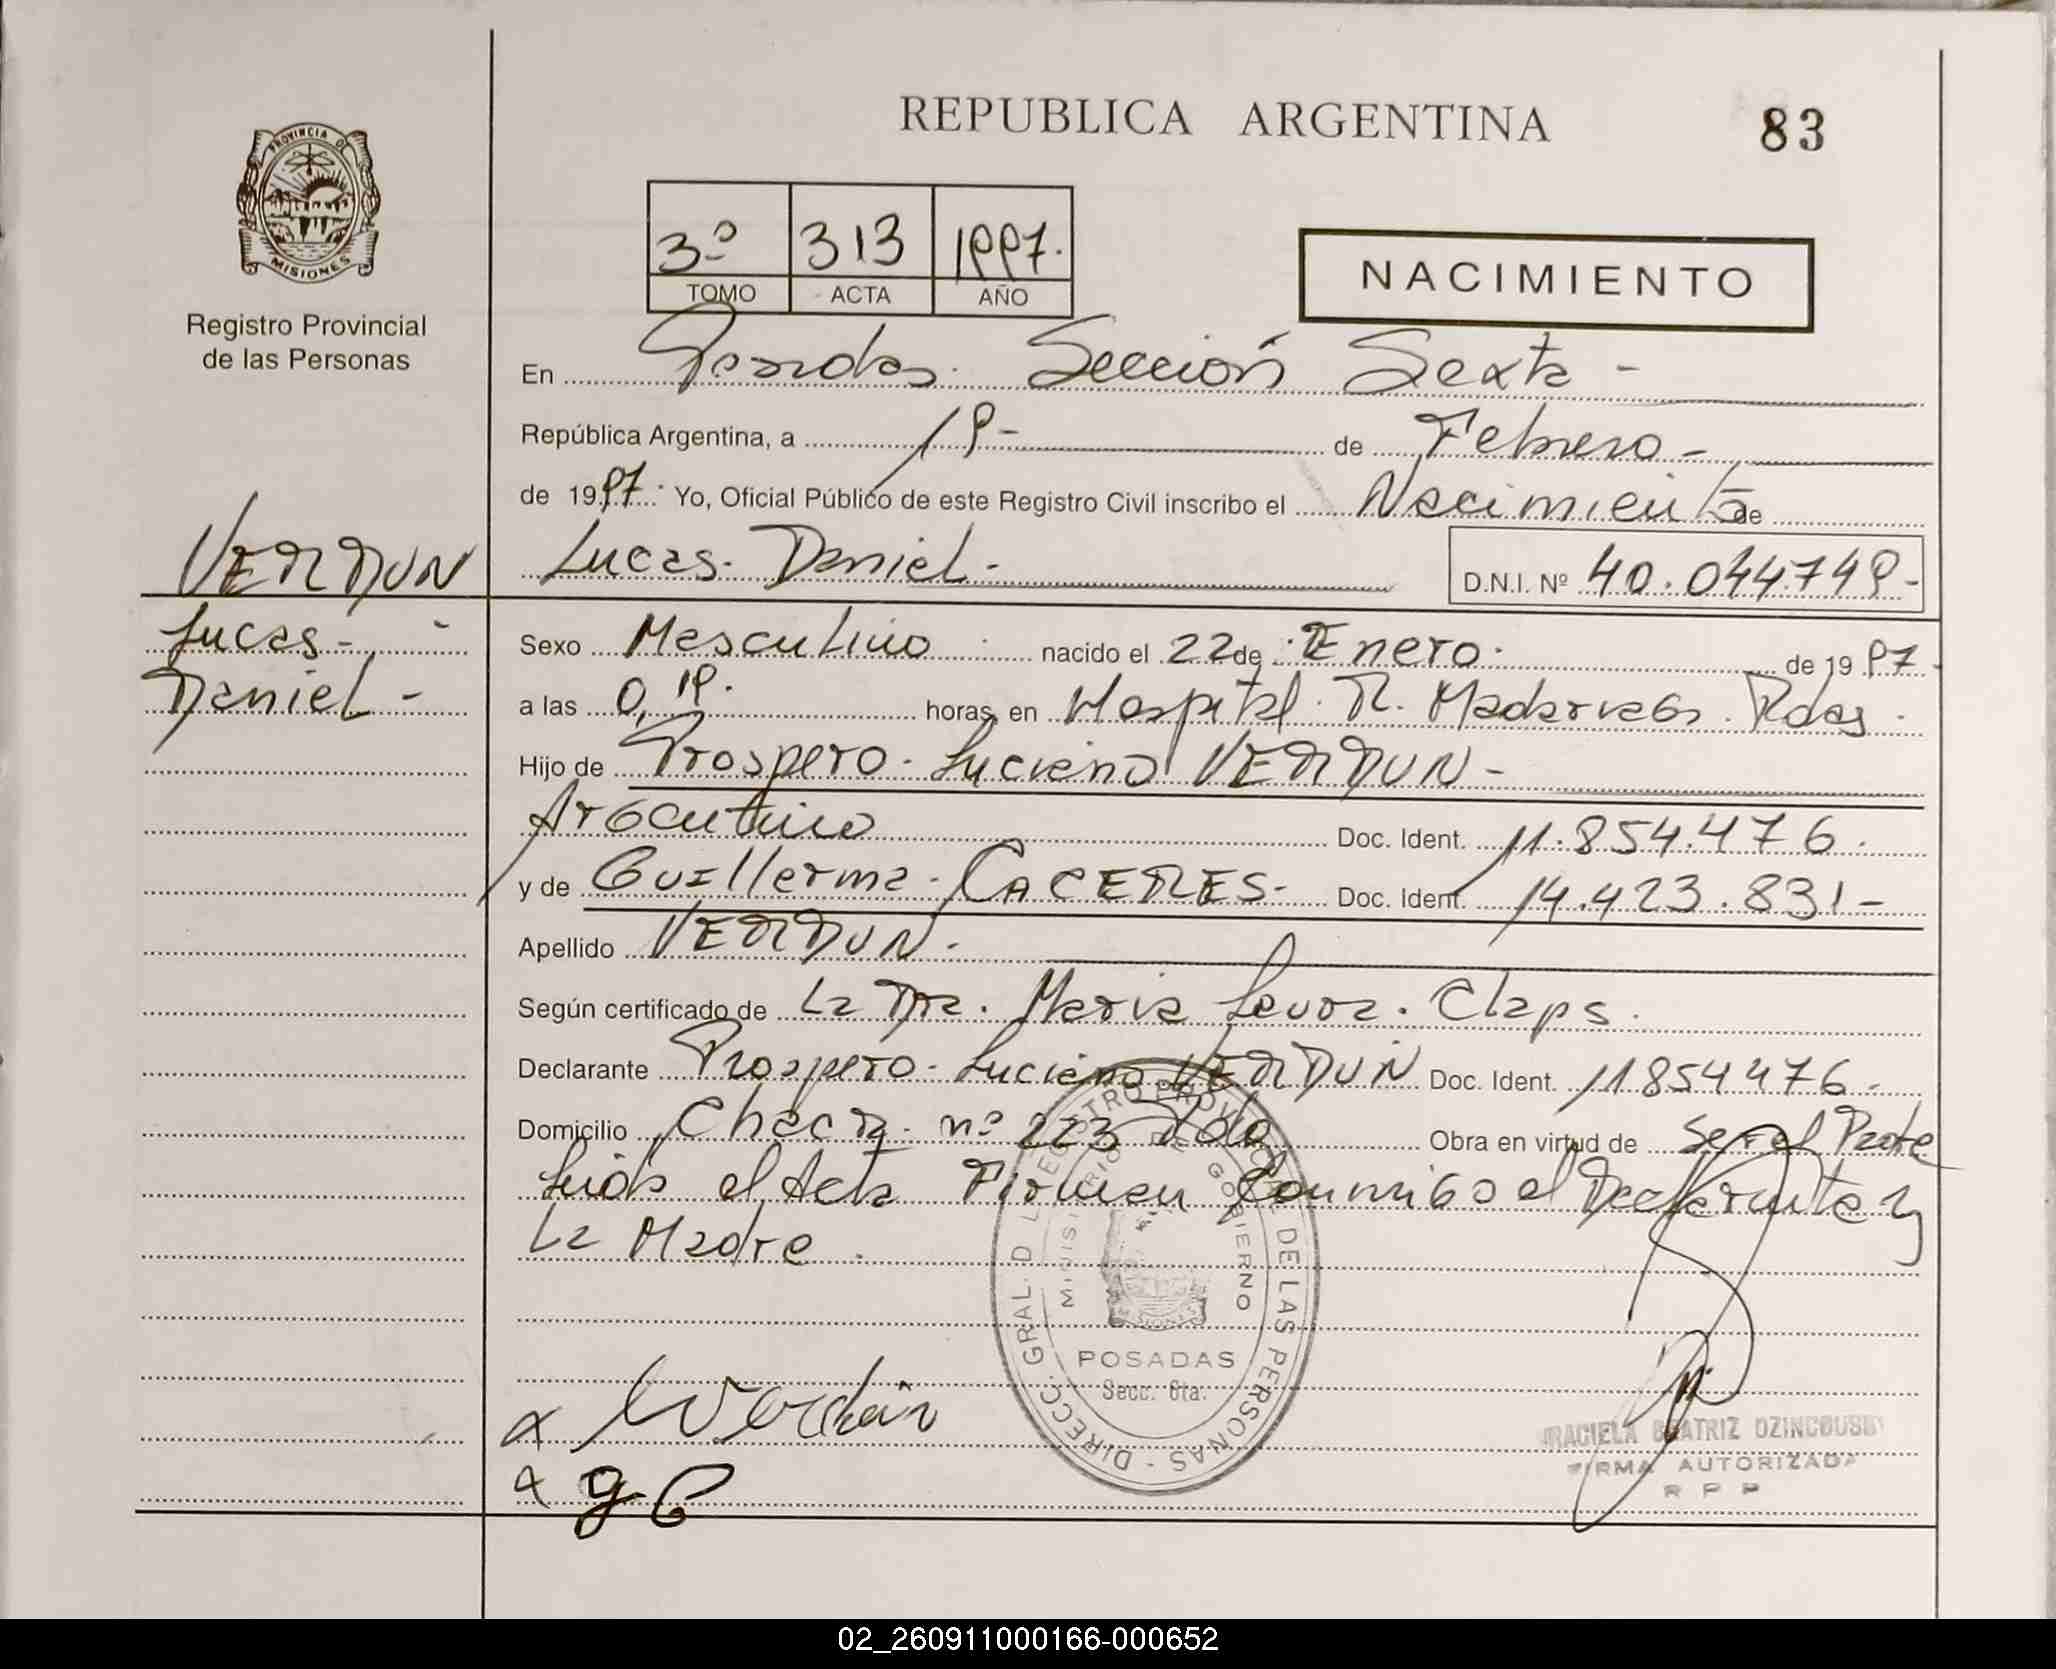 REPUBLICA ARGENTINA
83
PROVINCIA DE
MISIONES
Registro Provincial
de las Personas
3º 313 1997.
TOMO ACTA AÑO
NACIMIENTO
En Posadas. Sección Sexta -
República Argentina, a 19- de Febrero -
de 1997. Yo, Oficial Público de este Registro Civil inscribo el Nacimiento de
VERDUN
Lucas. Daniel.-
D.N.I. Nº 40.044.749-
Lucas-
Daniel-
Sexo Masculino nacido el 22 de Enero. de 1997-
a las 0,19. horas, en Hospital. R. Madariaga. Pdas.
Hijo de Prospero - Luciano VERDUN -
Argentino Doc. Ident. 11.854.476.
y de Guillerma - CACERES - Doc. Ident. 14.423.831-
Apellido VERDUN.
Según certificado de La Dra. Maria Laura. Claps.
Declarante Prospero - Luciano VERDUN Doc. Ident. 11854476-
Domicilio Chacra nº 223 Obra en virtud de Ser el
el Acta Firman Conmigo el Declarante y
La Madre.
DIRECC. GRAL. D L REGISTRO PROVINCIAL DE LAS PERSONAS -
MINISTERIO DE GOBIERNO
POSADAS
Secc. 6ta.
x Verdún
x g C
GRACIELA BEATRIZ
FIRMA AUTORIZADA
R P P
02_260911000166-000652